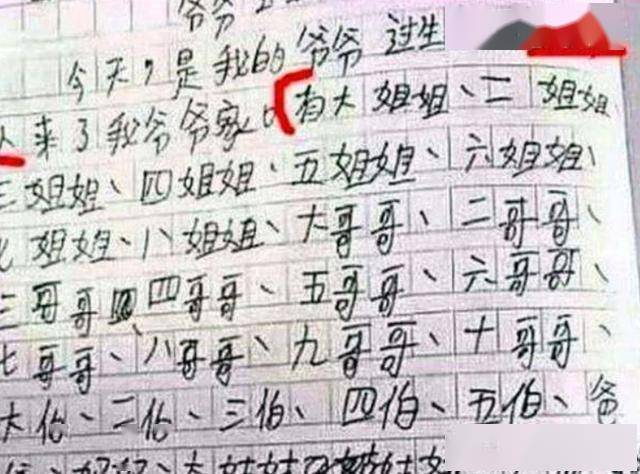 爷爷
今天,是我的爷爷过生
人来了我爷爷家。有大姐姐、二姐姐
三姐姐、四姐姐、五姐姐、六姐姐、
七姐姐、八姐姐、大哥哥、二哥哥、
三哥哥四四哥哥、五哥哥、六哥哥、
七哥哥、八哥哥、九哥哥、十哥哥、
大伯、二伯、三伯、四伯、五伯、爸